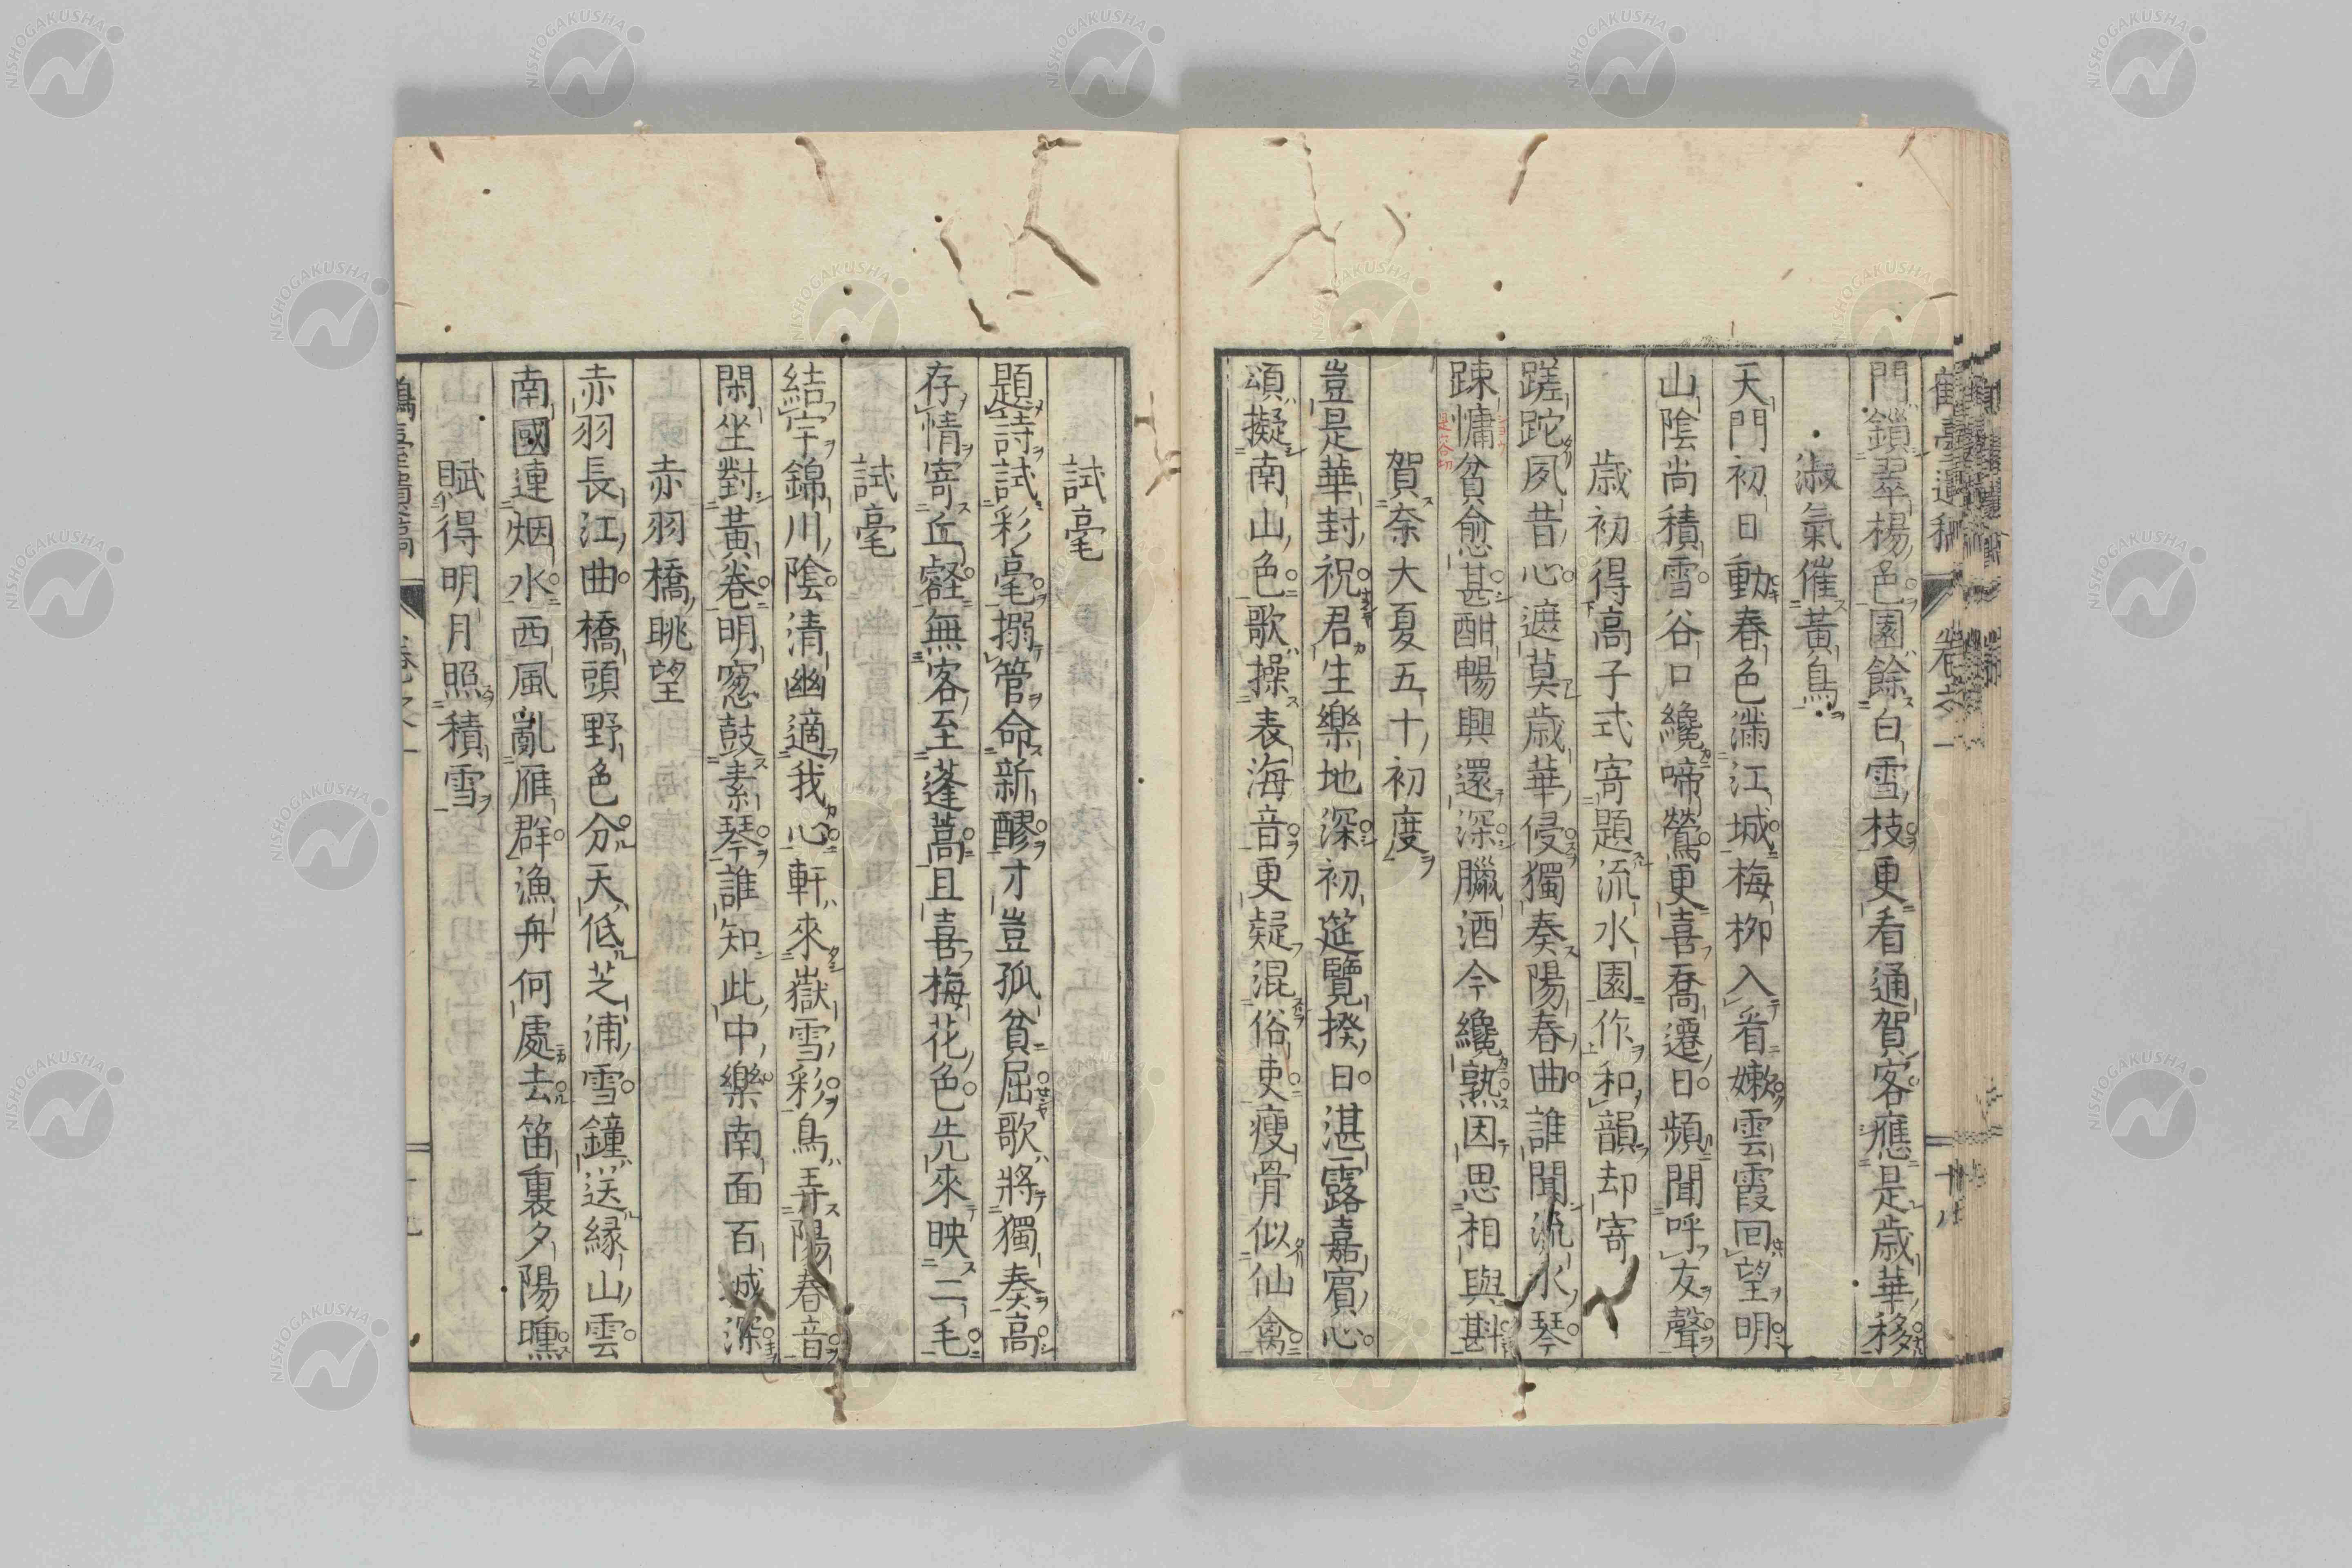 門鎖翠楊色園餘白雪枝更看通賀客應是歲華移
淑氣催黃鳥
天門初日動春色滿江城梅柳入看嫩雲霞回望明
山陰尚積雪谷口纔啼鶯更喜喬遷日頻聞呼友聲
歲初得高子式寄題流水園作和韻却寄
蹉跎夙昔心遮莫歲華侵獨奏陽春曲誰聞流水琴
踈慵貧愈甚酣暢興還深臘酒今纔熟因思相與斟
賀奈大夏五十初度
豈是華封祝君生樂地深初筵覽揆日湛露嘉賓心
頌擬南山色歌操表海音更疑混俗吏瘦骨似仙禽
試毫
題詩試彩毫搦管命新醪才豈孤貧屈歌將獨奏高
存情寄丘壑無客至蓬蒿且喜梅花色先來映二毛
試毫
結宇錦川陰清幽適我心軒來嶽雪彩鳥弄陽春音
閑坐對黃卷明窓鼓素琴誰知此中樂南面百城深
赤羽橋眺望
赤羽長江曲橋頭野色分天低芝浦雪鐘送緣山雲
南國連烟水西風亂雁群漁舟何處去笛裏夕陽曛
賦得明月照積雪
NISHOGAKUSHA